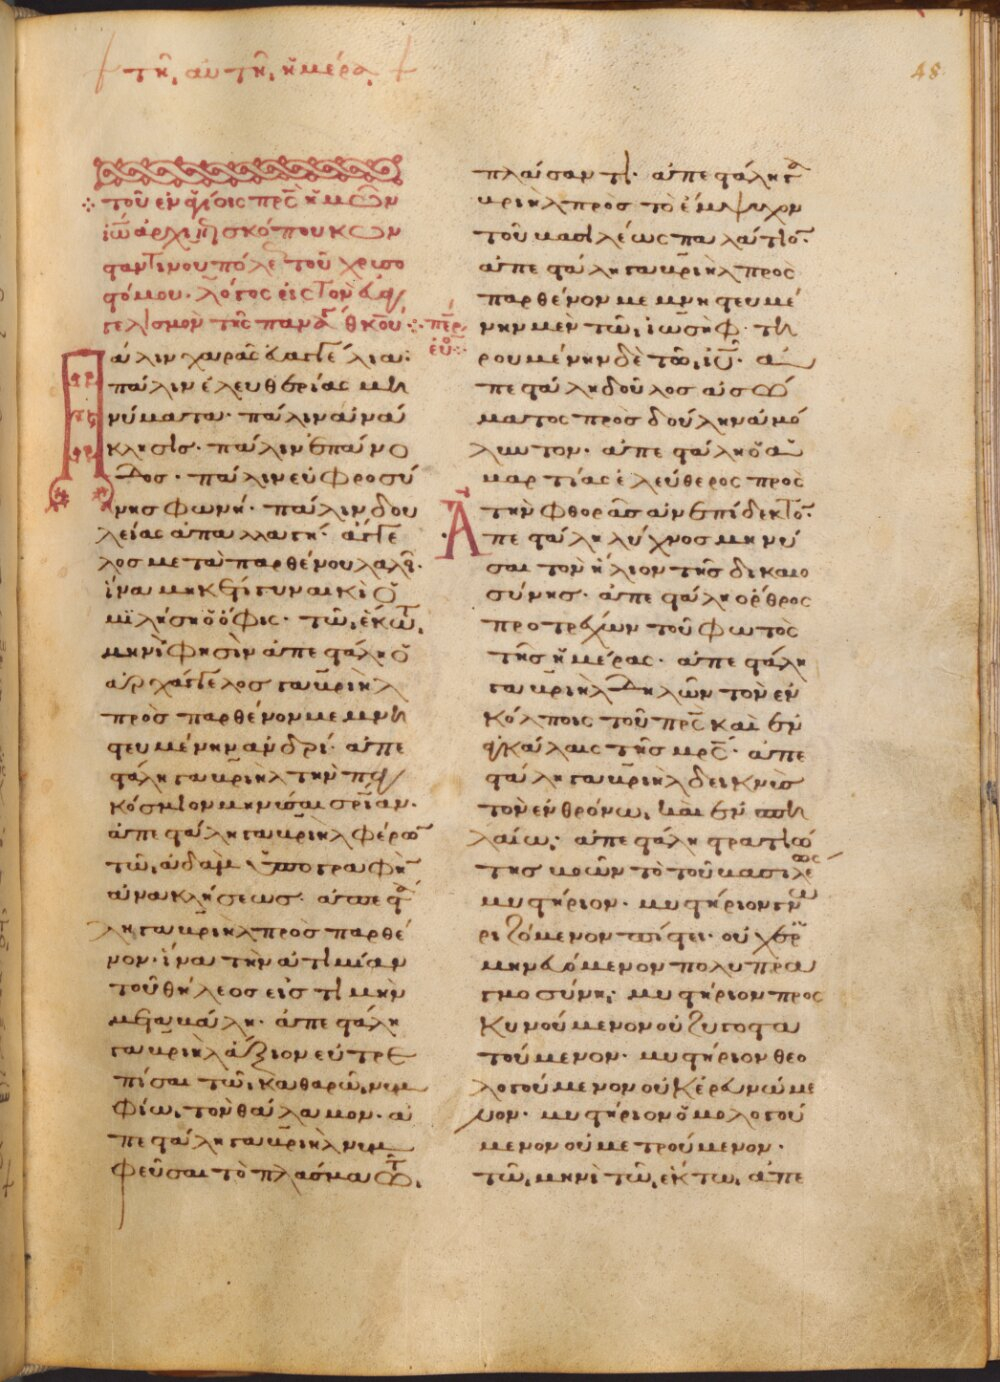 τῆ αὐτῆ ἡμέρα
48
τοῦ ἐν ἁγίοις πρς ἡμῶν
ἰω ἀρχιεπισκόπου κων
σταντίνου πόλε τοῦ χρυσο
στόμου· λόγος εἰς τὸν εὐαγ
γελισμὸν τῆς παναγ θκου·
πάλιν χαρᾶς εὐαγγέλια·
πάλιν ἐλευθερίας μη
νύματα· πάλιν ἀνά
κλησις· πάλιν ἐπάνο
δος· πάλιν εὐφροσύ
νης φωνή· πάλιν δου
λείας ἀπαλλαγή· ἄγγε
λος μετὰ παρθένου λαλεῖ·
ἵνα μηκέτι γυναικὶ ὁ
μιλήση ὁ ὄφις· τῶ ἕκτω
μηνί φησιν ἀπεστάλη ὁ
ἀρχάγγελος γαβριὴλ
πρὸς παρθένον μεμνη
στευμένην ἀνδρί· ἀπε
στάλη γαβριὴλ τὴν παγ
κόσμιον μηνύσαι σρίαν·
ἀπεστάλη γαβριὴλ φέρων
τῶ ἀδὰμ ὑπογραφὴν
ἀνακλήσεως· ἀπεστά
λη γαβριὴλ πρὸς παρθέ
νον· ἵνα τὴν ἀτιμίαν
τοῦ θήλεος εἰς τιμὴν
μεταβάλη· ἀπεστάλη
γαβριὴλ ἄξιον εὐτρε
πίσαι τῶ καθαρῶ νυμ
φίω τὸν θάλαμον· ἀ
πεστάλη γαβριὴλ νυμ
φεῦσαι τὸ πλάσμα τῶ
πλάσαντι· ἀπεστάλη γα
βριὴλ πρὸς τὸ ἔμψυχον
τοῦ βασιλέως παλάτιον·
ἀπεστάλη γαβριὴλ πρὸς
παρθένον μεμνηστευμέ
νην μὲν τῶ ἰωσὴφ· τη
ρουμένην δὲ τῶ ἰυ· ἀ
πεστάλη δοῦλος ἀσώ
ματος πρὸς δούλην ἀμό
λυντον· ἀπεστάλη ὁ ἁ
μαρτίας ἐλεύθερος πρὸς
τὴν φθορᾶς ἀνεπίδεκτον·
Ἀπεστάλη λύχνος μηνύ
σαι τὸν ἥλιον τῆς δικαιο
σύνης· ἀπεστάλη ὄρθρος
προτρέχων τοῦ φωτὸς
τῆς ἡμέρας· ἀπεστάλη
γαβριὴλ δηλῶν τὸν ἐν
κόλποις τοῦ πρς καὶ ἐν
ἀγκάλαις τῆς μρς· ἀπε
στάλη γαβριὴλ δεικνὺς
τὸν ἐν θρόνω καὶ ἐν σπη
λαίω· ἀπεστάλη στρατιώ
της βοῶν τὸ τοῦ βασιλέως
μυστήριον· μυστήριον γνω
ριζόμενον πίστει· οὐχ ἑρ
μηνευόμενον πολυπρα
γμοσύνη· μυστήριον προσ
κυνούμενον οὐ ζυγοστα
τούμενον· μυστήριον θεο
λογούμενον οὐ κέρδ νώμε
νον· μυστήριον ὁμολογού
μενον οὐ μετρούμενον·
τῶ μηνὶ τῶ ἕκτω ἀπε